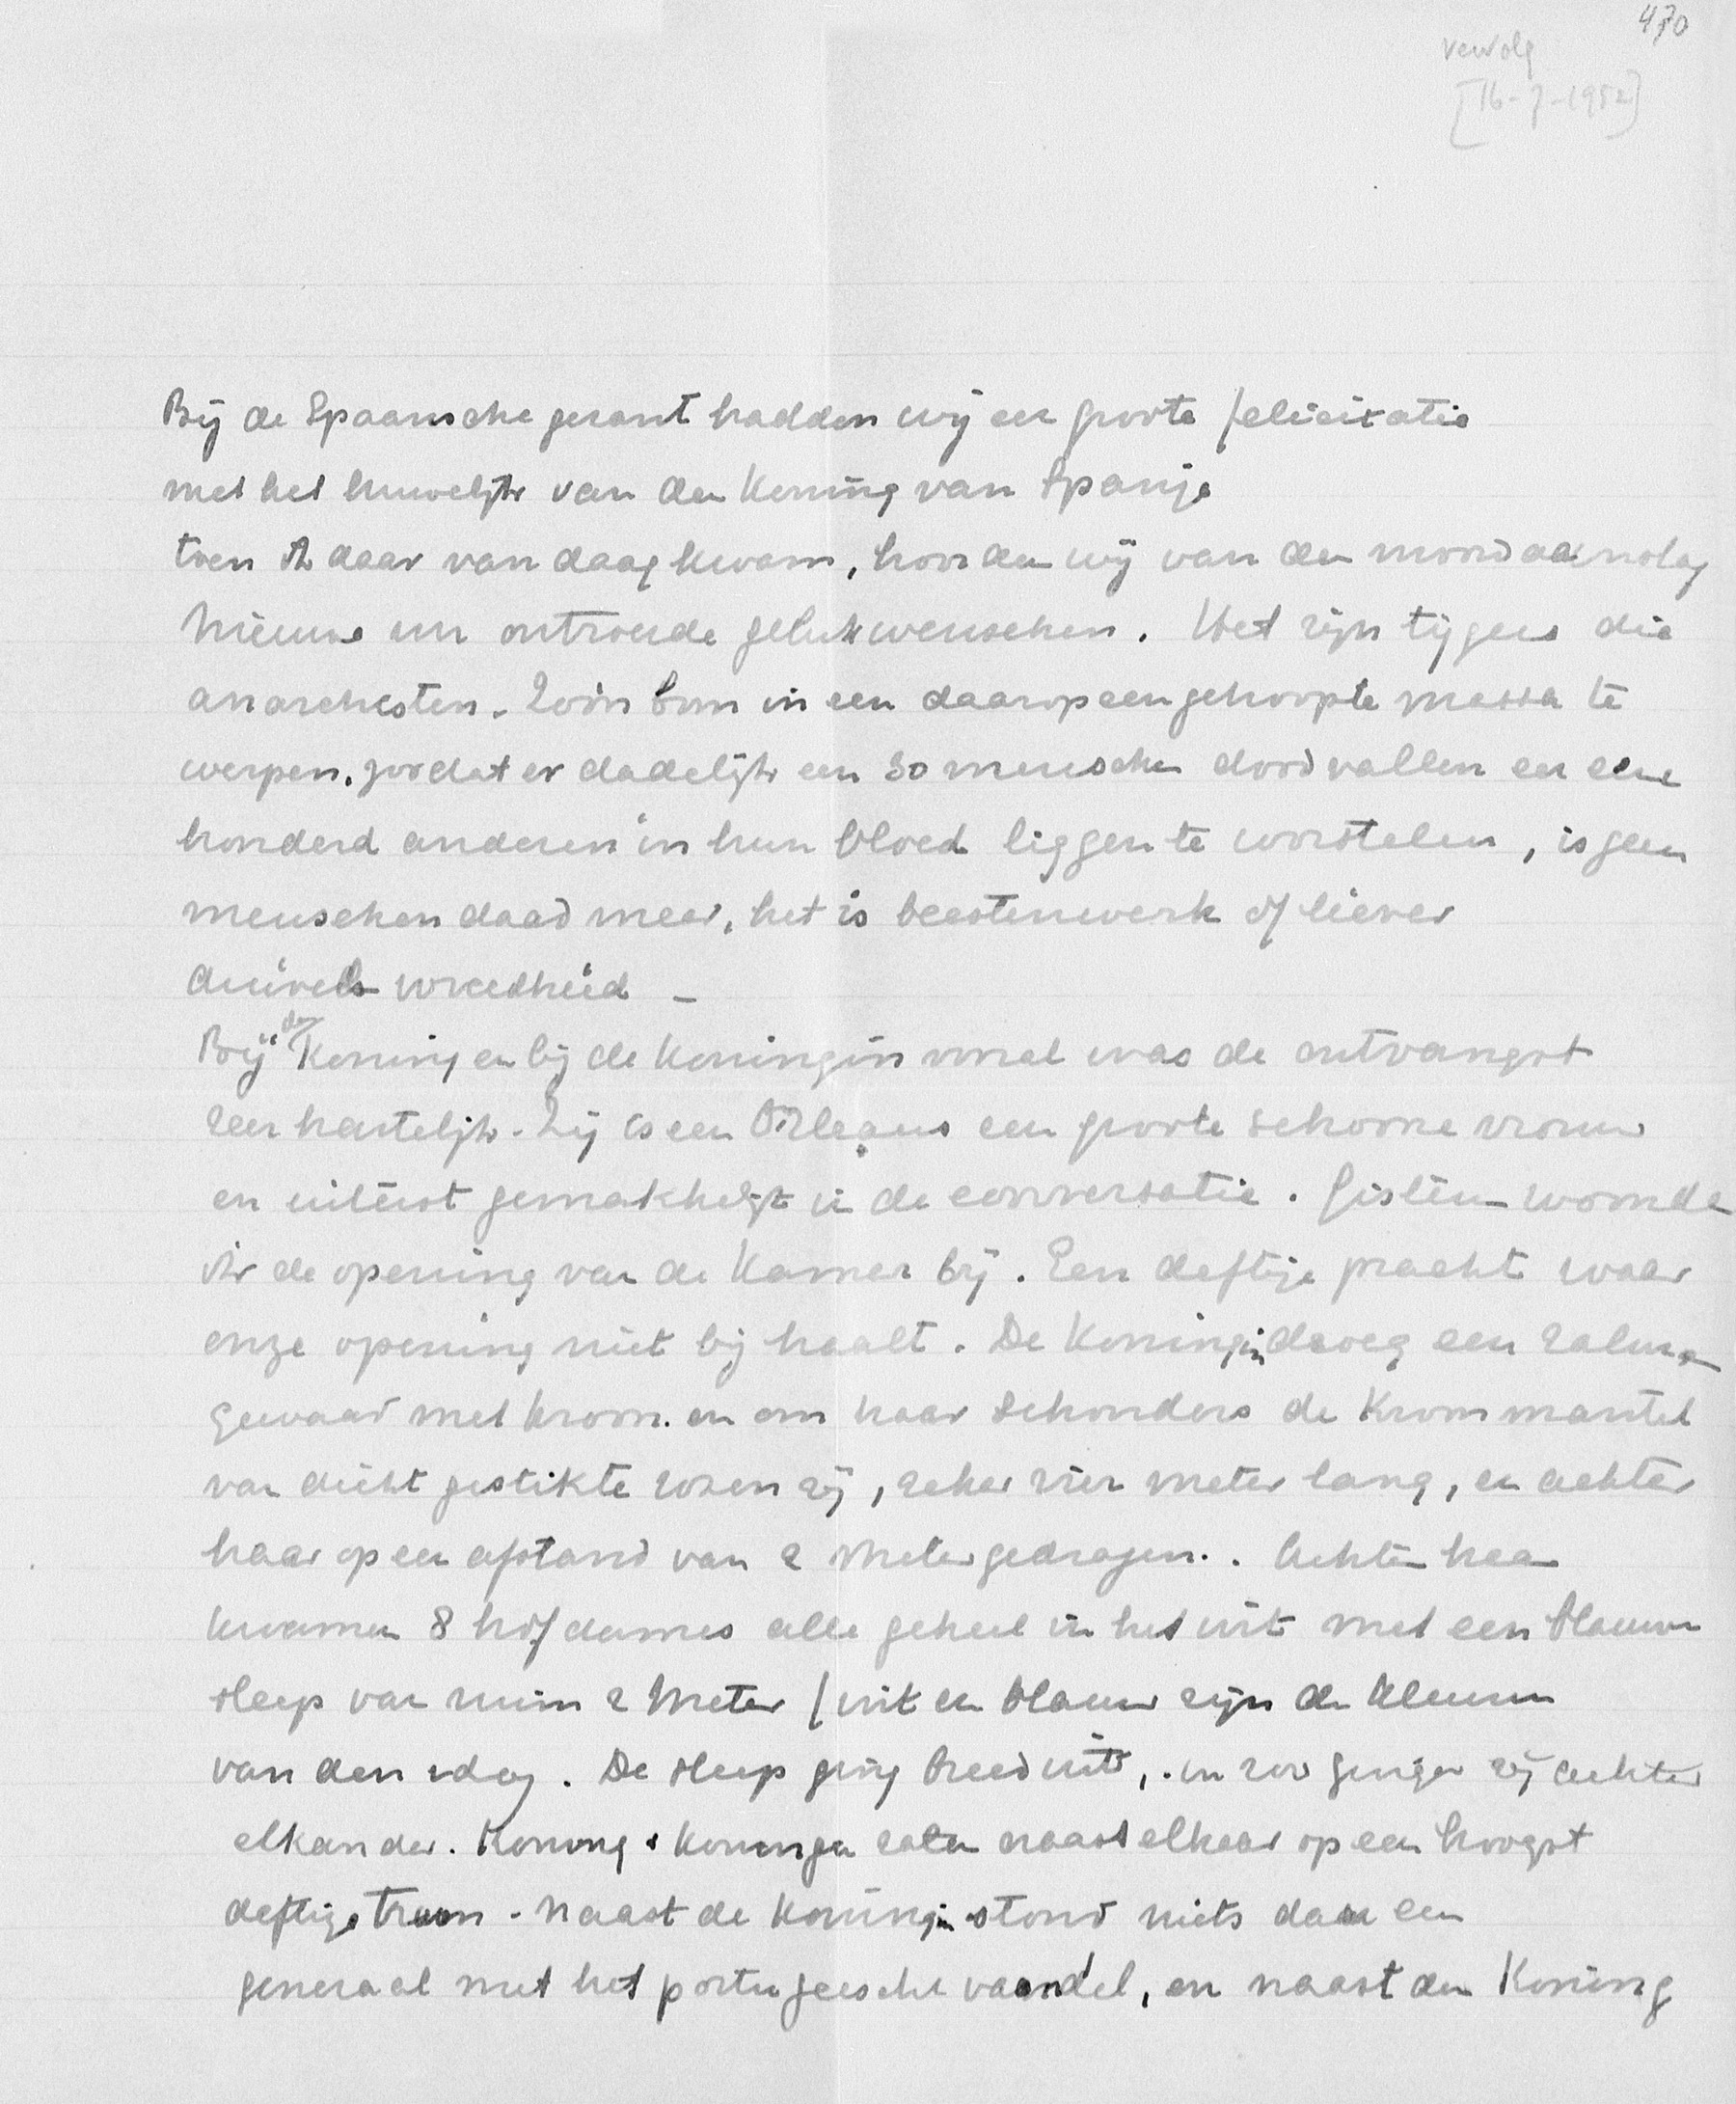 470
vervolg
[16-7-1952]
Bij de Spaansche gezant hadden wij een groote felicitatie
met het huwelijk van den Koning van Spanje
toen ik daar van daag kwam, hoorden wij van den moordaanslag
Nieuwe en ontroerde gelukwenschen. Het zijn tijgers die
anarchisten. Zoo'n bom in een daaropeengehoopte massa te
werpen, zoodat er dadelijk een 30 menschen dood vallen en een
honderd anderen in hun bloed liggen te worstelen, is geen
menschen daad meer, het is beestenwerk of liever
duivels wreedheid -
Bij den Koning en bij de Koningin vooral was de ontvangst
zeer hartelijk. Zij is een Orleans een groote schoone vrouw
en uiterst gemakkelijk in de conversatie. Gisteren woonde
ik de opening van de Kamer bij. Een deftige pracht waar
onze opening niet bij haalt. De Koningin droeg een zalm
gewaad met kroon en om haar schouders de Kroonmantel
van dicht gestikte rozen zij, zeker vier meter lang, en achter
haar op een afstand van 2 Meter gedragen. Achter haar
kwamen 8 hofdames alle geheel in het wit met een blauwe
sleep van ruim 2 Meter / wit en blauw zijn de kleuren
van den dag. De sleep ging breed uit, en zoo gingen zij achter
elkander. Koning & Koningin zaten naast elkaar op een hoogst
deftige troon. Naast de Koningin stond niets dan een
generaal met het portugeesche vaandel, en naast den Koning